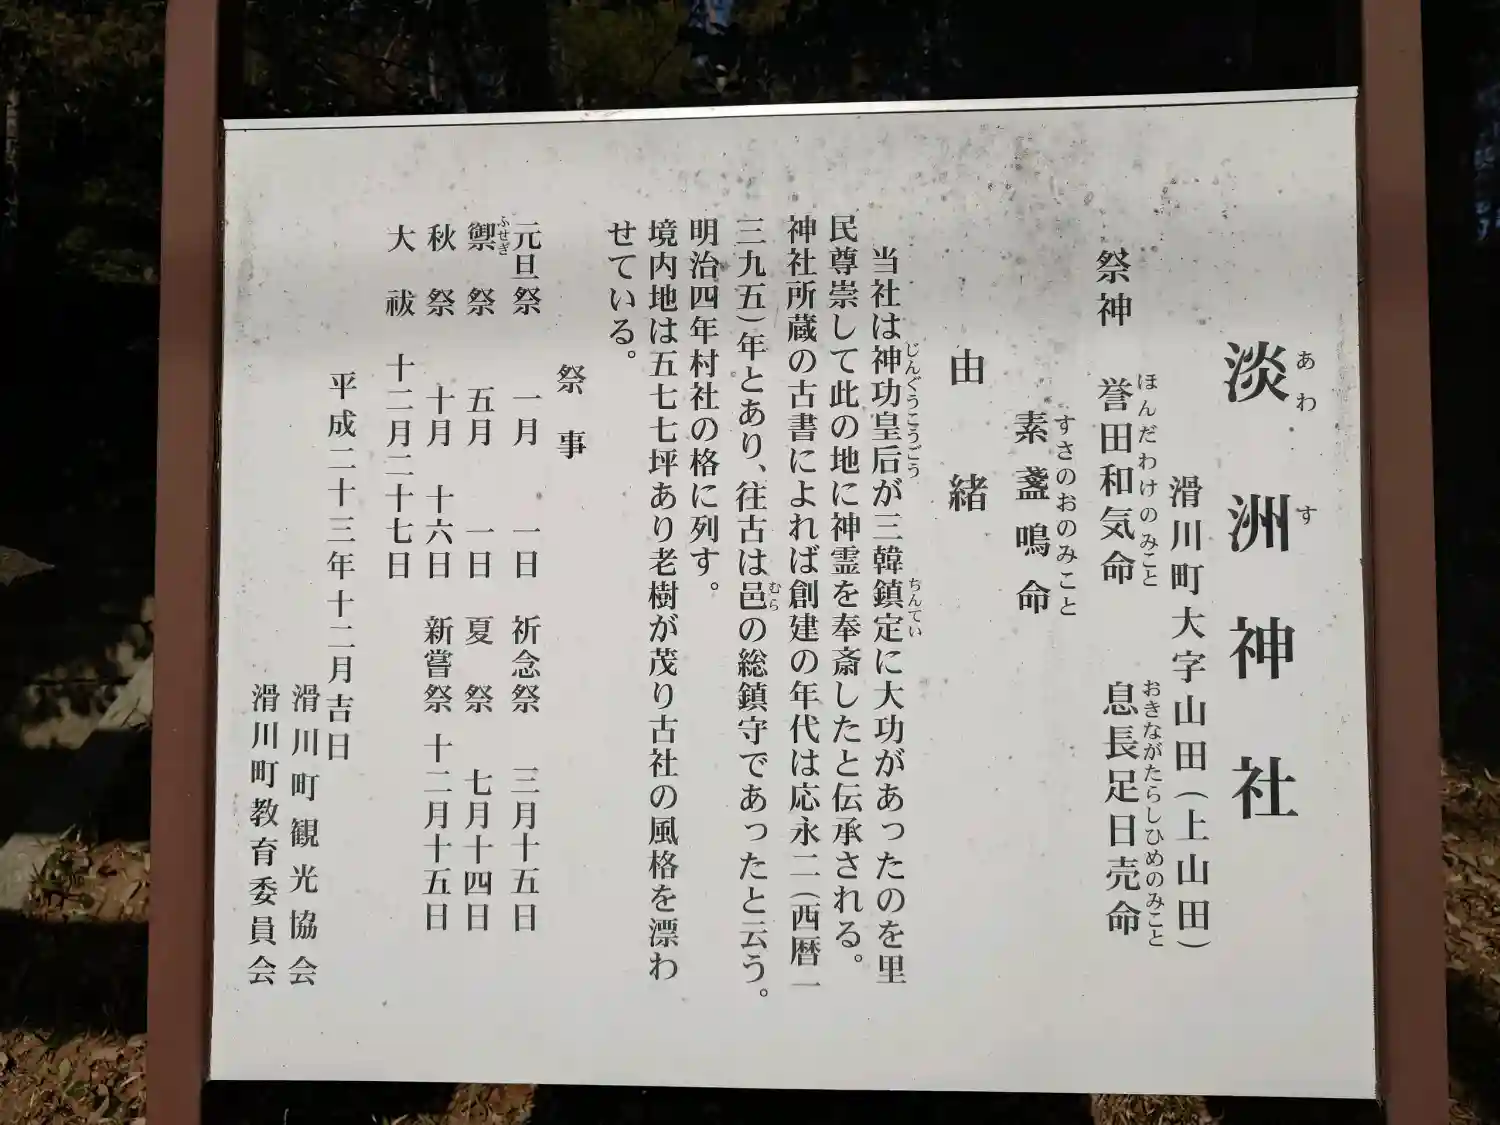 淡洲神社
あわす
滑川町大字山田（上山田）
祭神 誉田和気命 息長足日売命
ほんだわけのみこと おきながたらしひめのみこと
素盞鳴命
すさのおのみこと
由緒
当社は神功皇后が三韓鎮定に大功があったのを里
じんぐうこうごう ちんてい
民尊崇して此の地に神霊を奉斎したと伝承される。
神社所蔵の古書によれば創建の年代は応永二（西暦一
三九五）年とあり、往古は邑の総鎮守であったと云う。
むら
明治四年村社の格に列す。
境内地は五七七坪あり老樹が茂り古社の風格を漂わ
せている。
祭事
元旦祭 一月 一日 祈念祭 三月十五日
禦祭 五月 一日 夏祭 七月十四日
ふせぎ
秋祭 十月 十六日 新嘗祭 十二月十五日
大祓 十二月二十七日
平成二十三年十二月吉日
滑川町観光協会
滑川町教育委員会